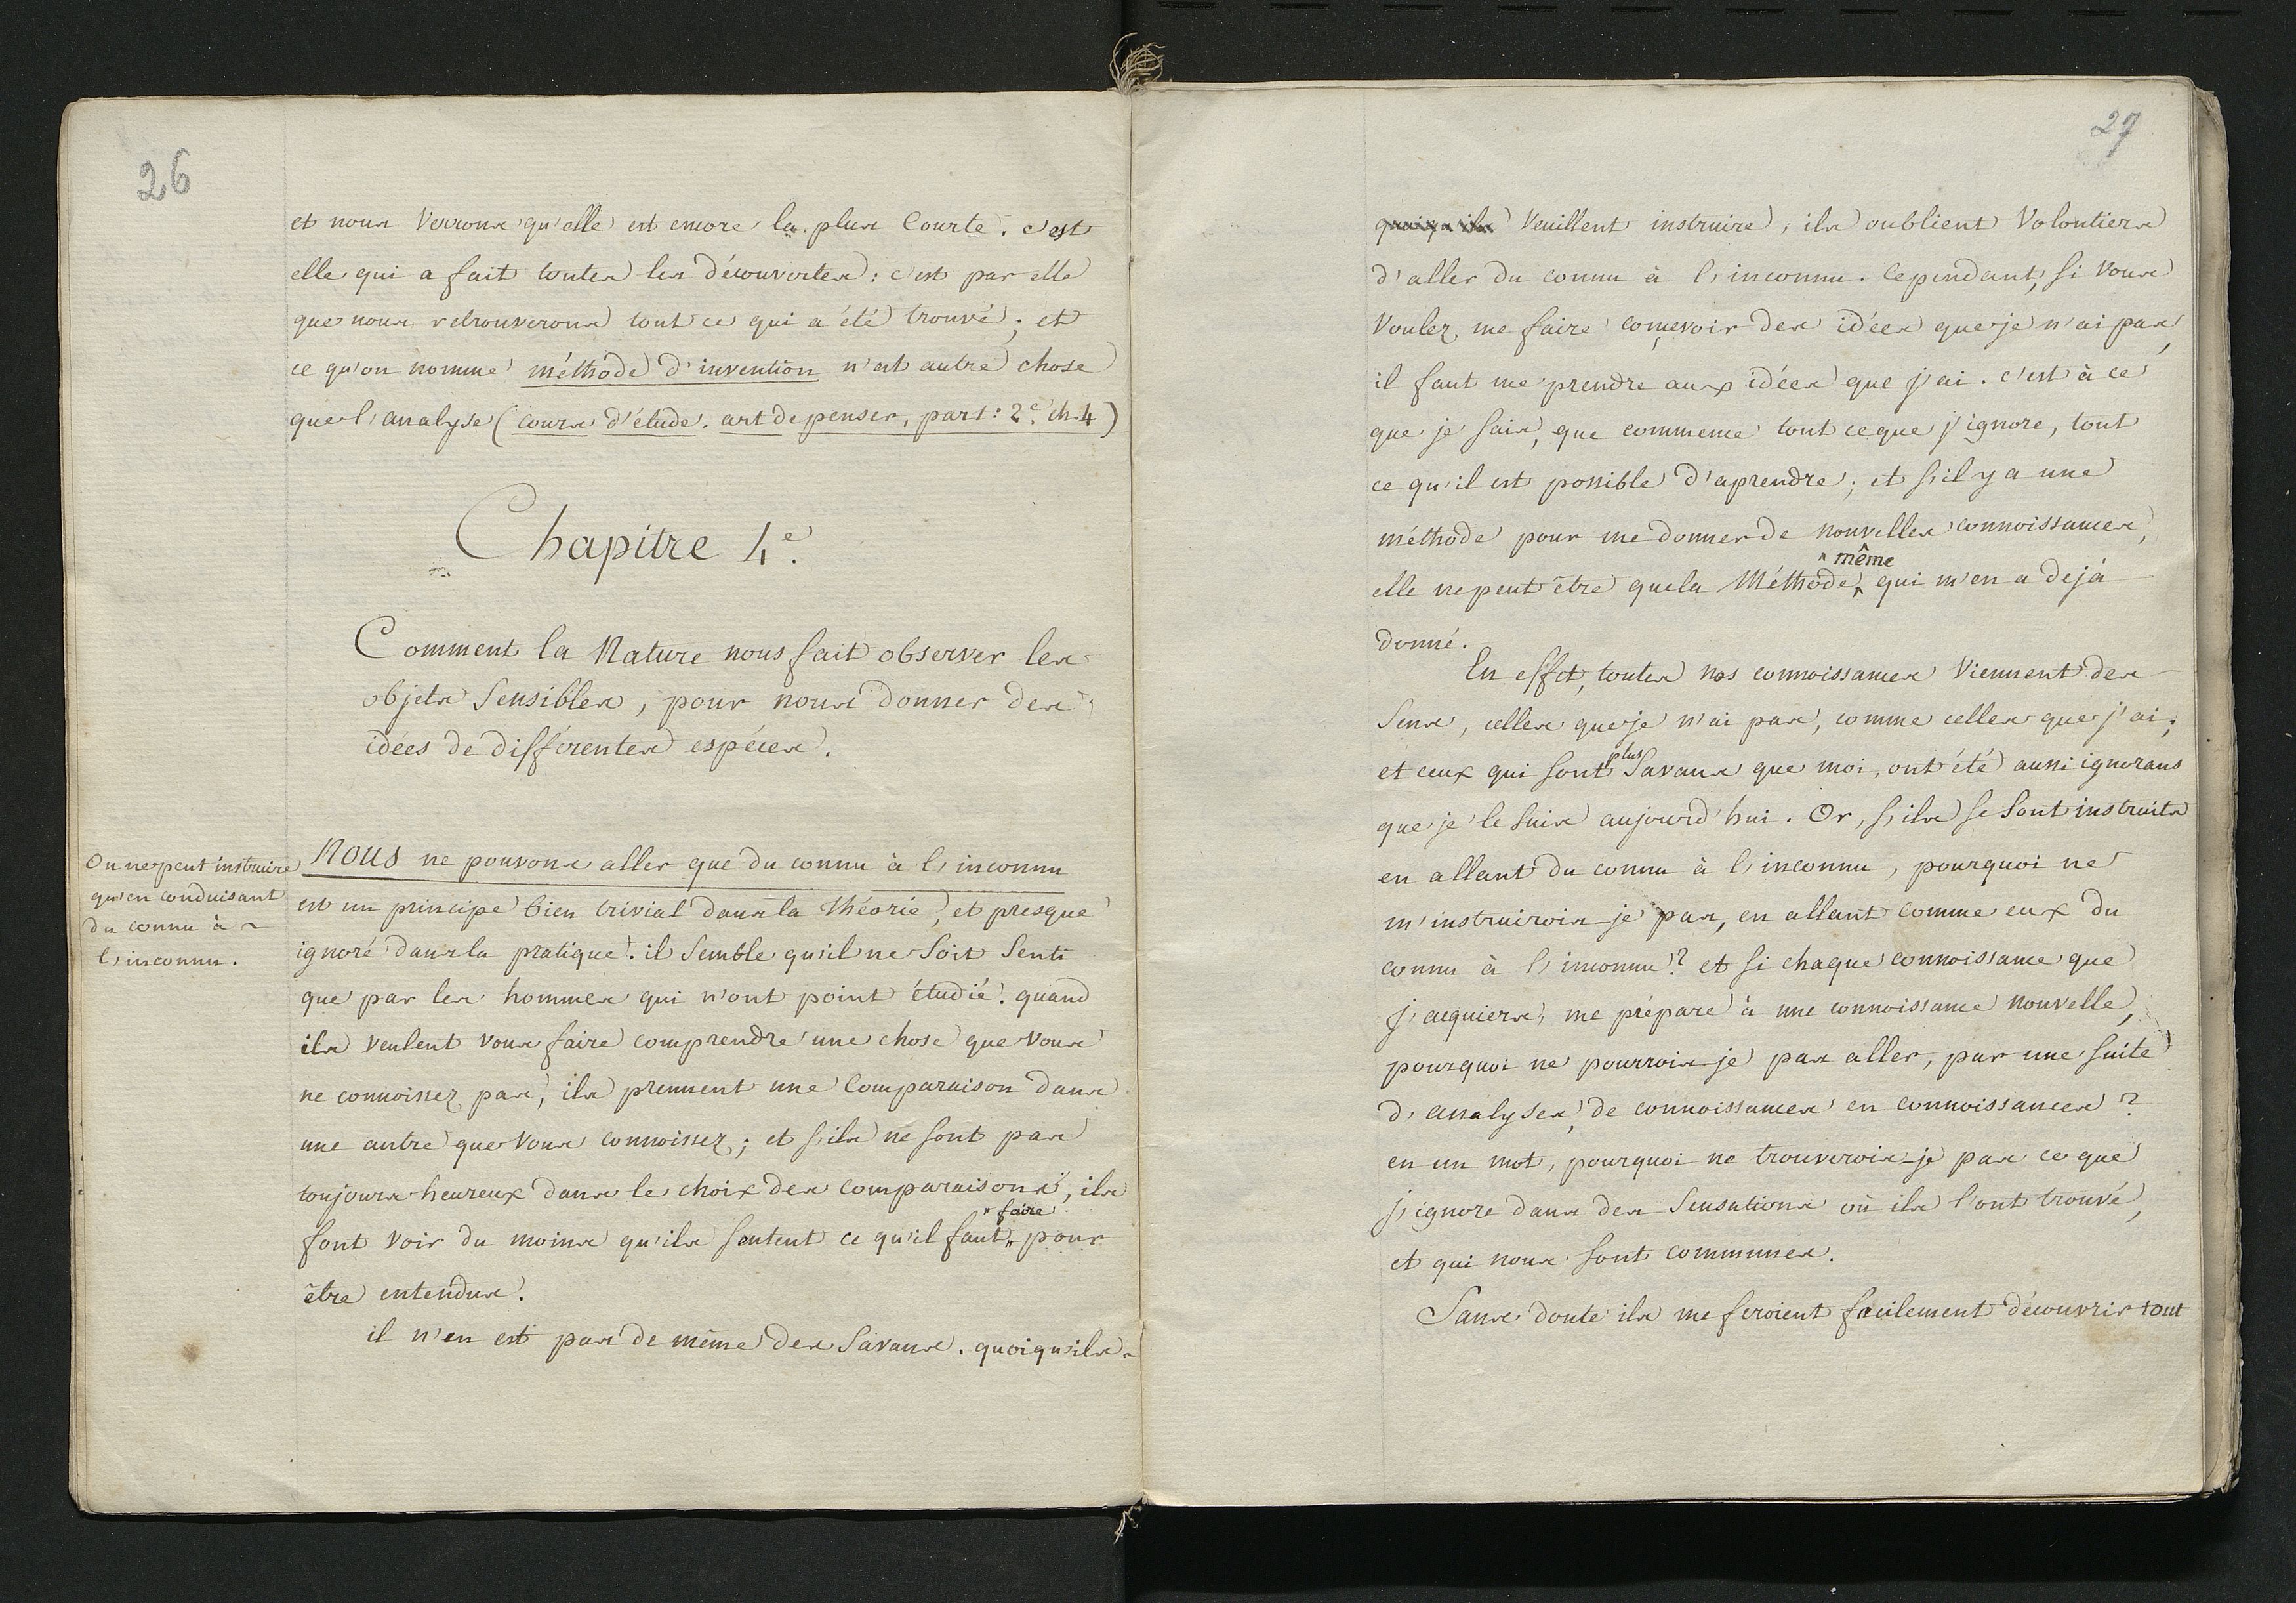 26
et nous Verrons qu'elle est encore la plus Courte. c'est
elle qui a fait toutes les découvertes : c'est par elle
que nous retrouverons tout ce qui a été trouvé ; et
ce qu'on nomme méthode d'invention n'est autre chose
que l'analyse (cours d'étude. art de penser, part : 2e. ch. 4)
Chapitre 4e.
Comment la Nature nous fait observer les
objets Sensibles, pour nous donner des
idées de différentes espéces.
On ne peut instruire
qu'en conduisant
du connu à
l'inconnu.
Nous ne pouvons aller que du connu à l'inconnu
est un principe bien trivial dans la théorie, et presque
ignoré dans la pratique. il Semble qu'il ne Soit Senti
que par les hommes qui n'ont point étudié. quand
ils veulent vous faire comprendre une chose que vous
ne connoissez pas, ils prennent une Comparaison dans
une autre que vous connoissez ; et s'ils ne sont pas
toujours heureux dans le choix des comparaisons, ils
font voir du moins qu'ils sentent ce qu'il faut faire pour
être entendus.
il n'en est pas de même des Savans. quoiqu'ils
27
quoiqu'ils Veuillent instruire, ils oublient Volontiers
d'aller du connu à l'inconnu. Cependant, si vous
voulez me faire concevoir des idées que je n'ai pas,
il faut me prendre aux idées que j'ai. c'est à ce
que je sais, que commence tout ce que j'ignore, tout
ce qu'il est possible d'aprendre ; et s'il y a une
méthode pour me donner de nouvelles connoissances,
elle ne peut être que la Méthode même qui m'en a dejà
donné.
En effet, toutes nos connoissances Viennent des
Sens, celles que je n'ai pas, comme celles que j'ai ;
et ceux qui sont plus Savans que moi, ont été aussi ignorans
que je le suis aujourd'hui. Or, s'ils se Sont instruits
en allant du connu à l'inconnu, pourquoi ne
m'instruirois-je pas, en allant comme eux du
connu à l'inconnu ? et si chaque connoissance que
j'acquiers, me prépare à une connoissance nouvelle,
pourquoi ne pourrois-je pas aller, par une suite
d'analyses, de connoissances en connoissances ?
en un mot, pourquoi ne trouverois-je pas ce que
j'ignore dans des Sensations où ils l'ont trouvé,
et qui nous sont communes.
Sans doute ils me feroient facilement découvrir tout